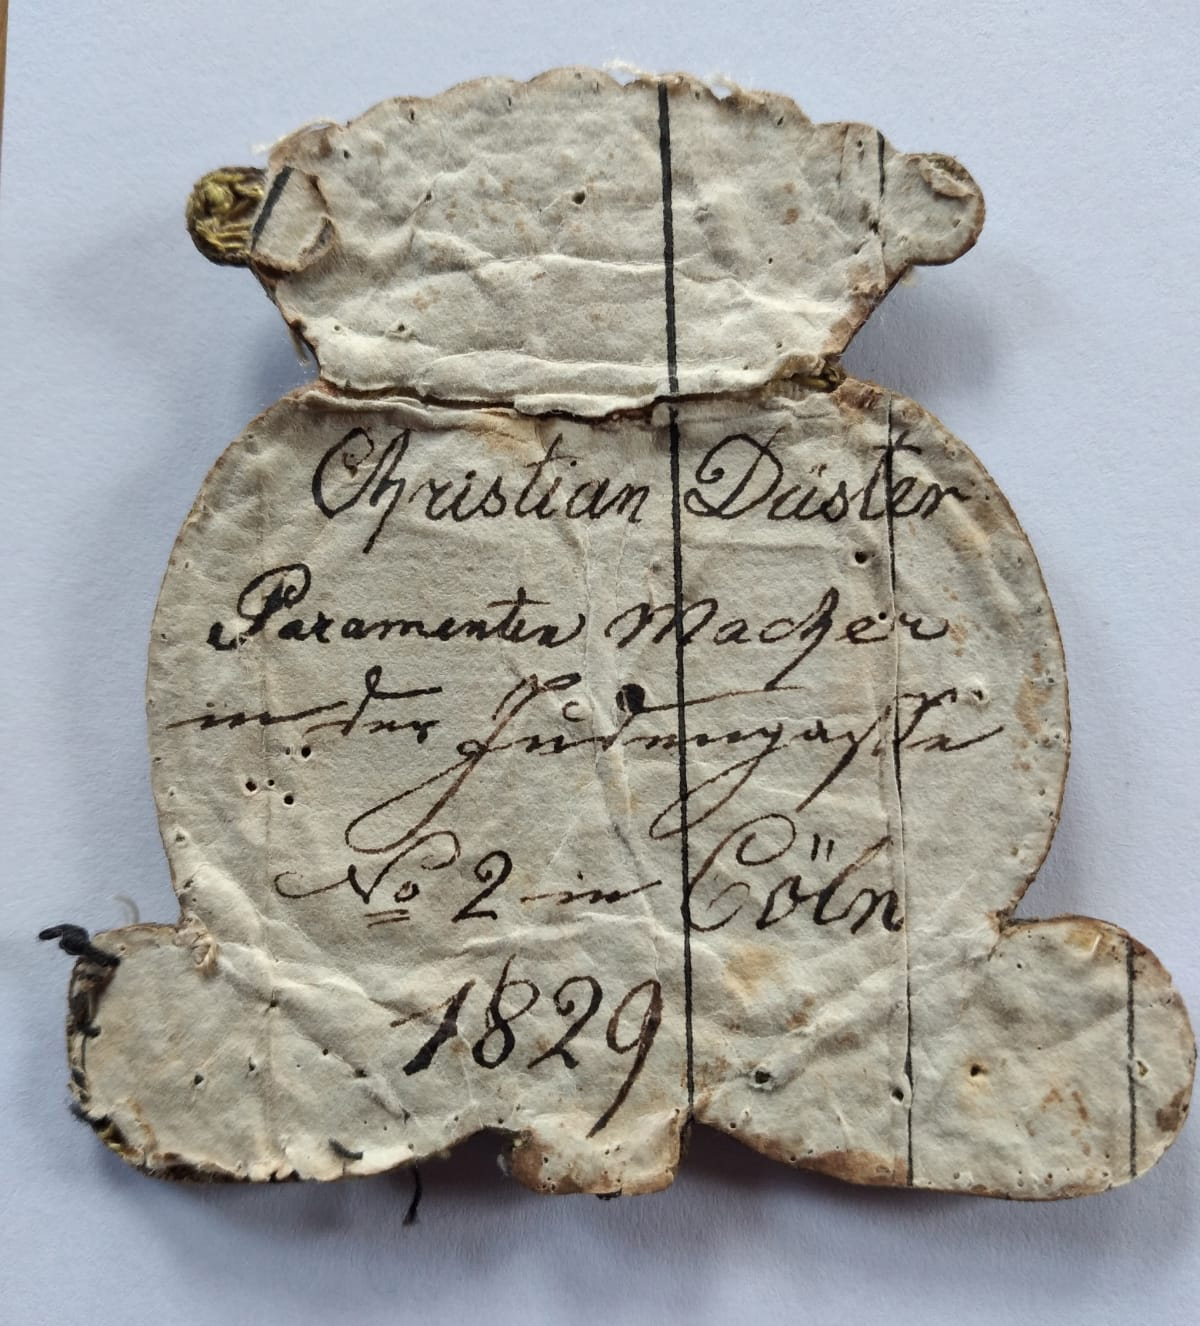 Christian Düster
Paramenten Macher
in der Judengaße
No 2 in Cöln
1829